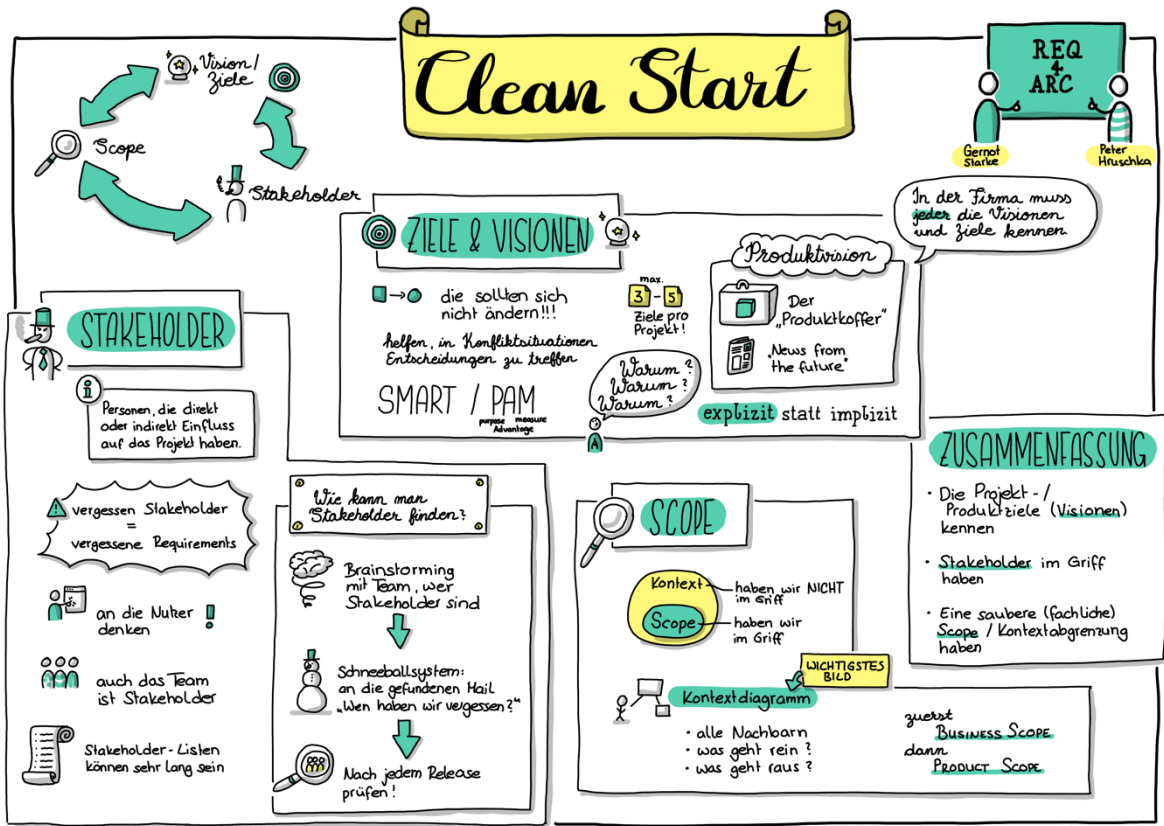 Clean Start
REQ
4
ARC
Gernot
Starke
Peter
Hruschka
Vision/
Ziele
Scope
Stakeholder
In der Firma muss
jeder die Visionen
und Ziele kennen.
ZIELE & VISIONEN
die sollten sich
nicht ändern!!!
helfen, in Konfliktsituationen
Entscheidungen zu treffen
SMART / PAM
purpose measure
Advantage
max.
3 - 5
Ziele pro
Projekt!
Warum?
Warum?
Warum?
A
Produktvision
Der
„Produktkoffer"
"News from
the future"
explizit statt implizit
STAKEHOLDER
i
Personen, die direkt
oder indirekt Einfluss
auf das Projekt haben.
vergessen Stakeholder
=
vergessene Requirements
an die Nutzer
denken
auch das Team
ist Stakeholder
Stakeholder-Listen
können sehr lang sein
Wie kann man
Stakeholder finden?
Brainstorming
mit Team, wer
Stakeholder sind
Schneeballsystem:
an die gefundenen Mail
„Wen haben wir vergessen?"
Nach jedem Release
prüfen!
SCOPE
Kontext
haben wir NICHT
im Griff
Scope
haben wir
im Griff
WICHTIGSTES
BILD
Kontextdiagramm
· alle Nachbarn
· was geht rein?
· was geht raus?
zuerst
BUSINESS SCOPE
dann
PRODUCT SCOPE
ZUSAMMENFASSUNG
· Die Projekt-/
Produktziele (Visionen)
kennen
· Stakeholder im Griff
haben
· Eine saubere (fachliche)
Scope / Kontextabgrenzung
haben